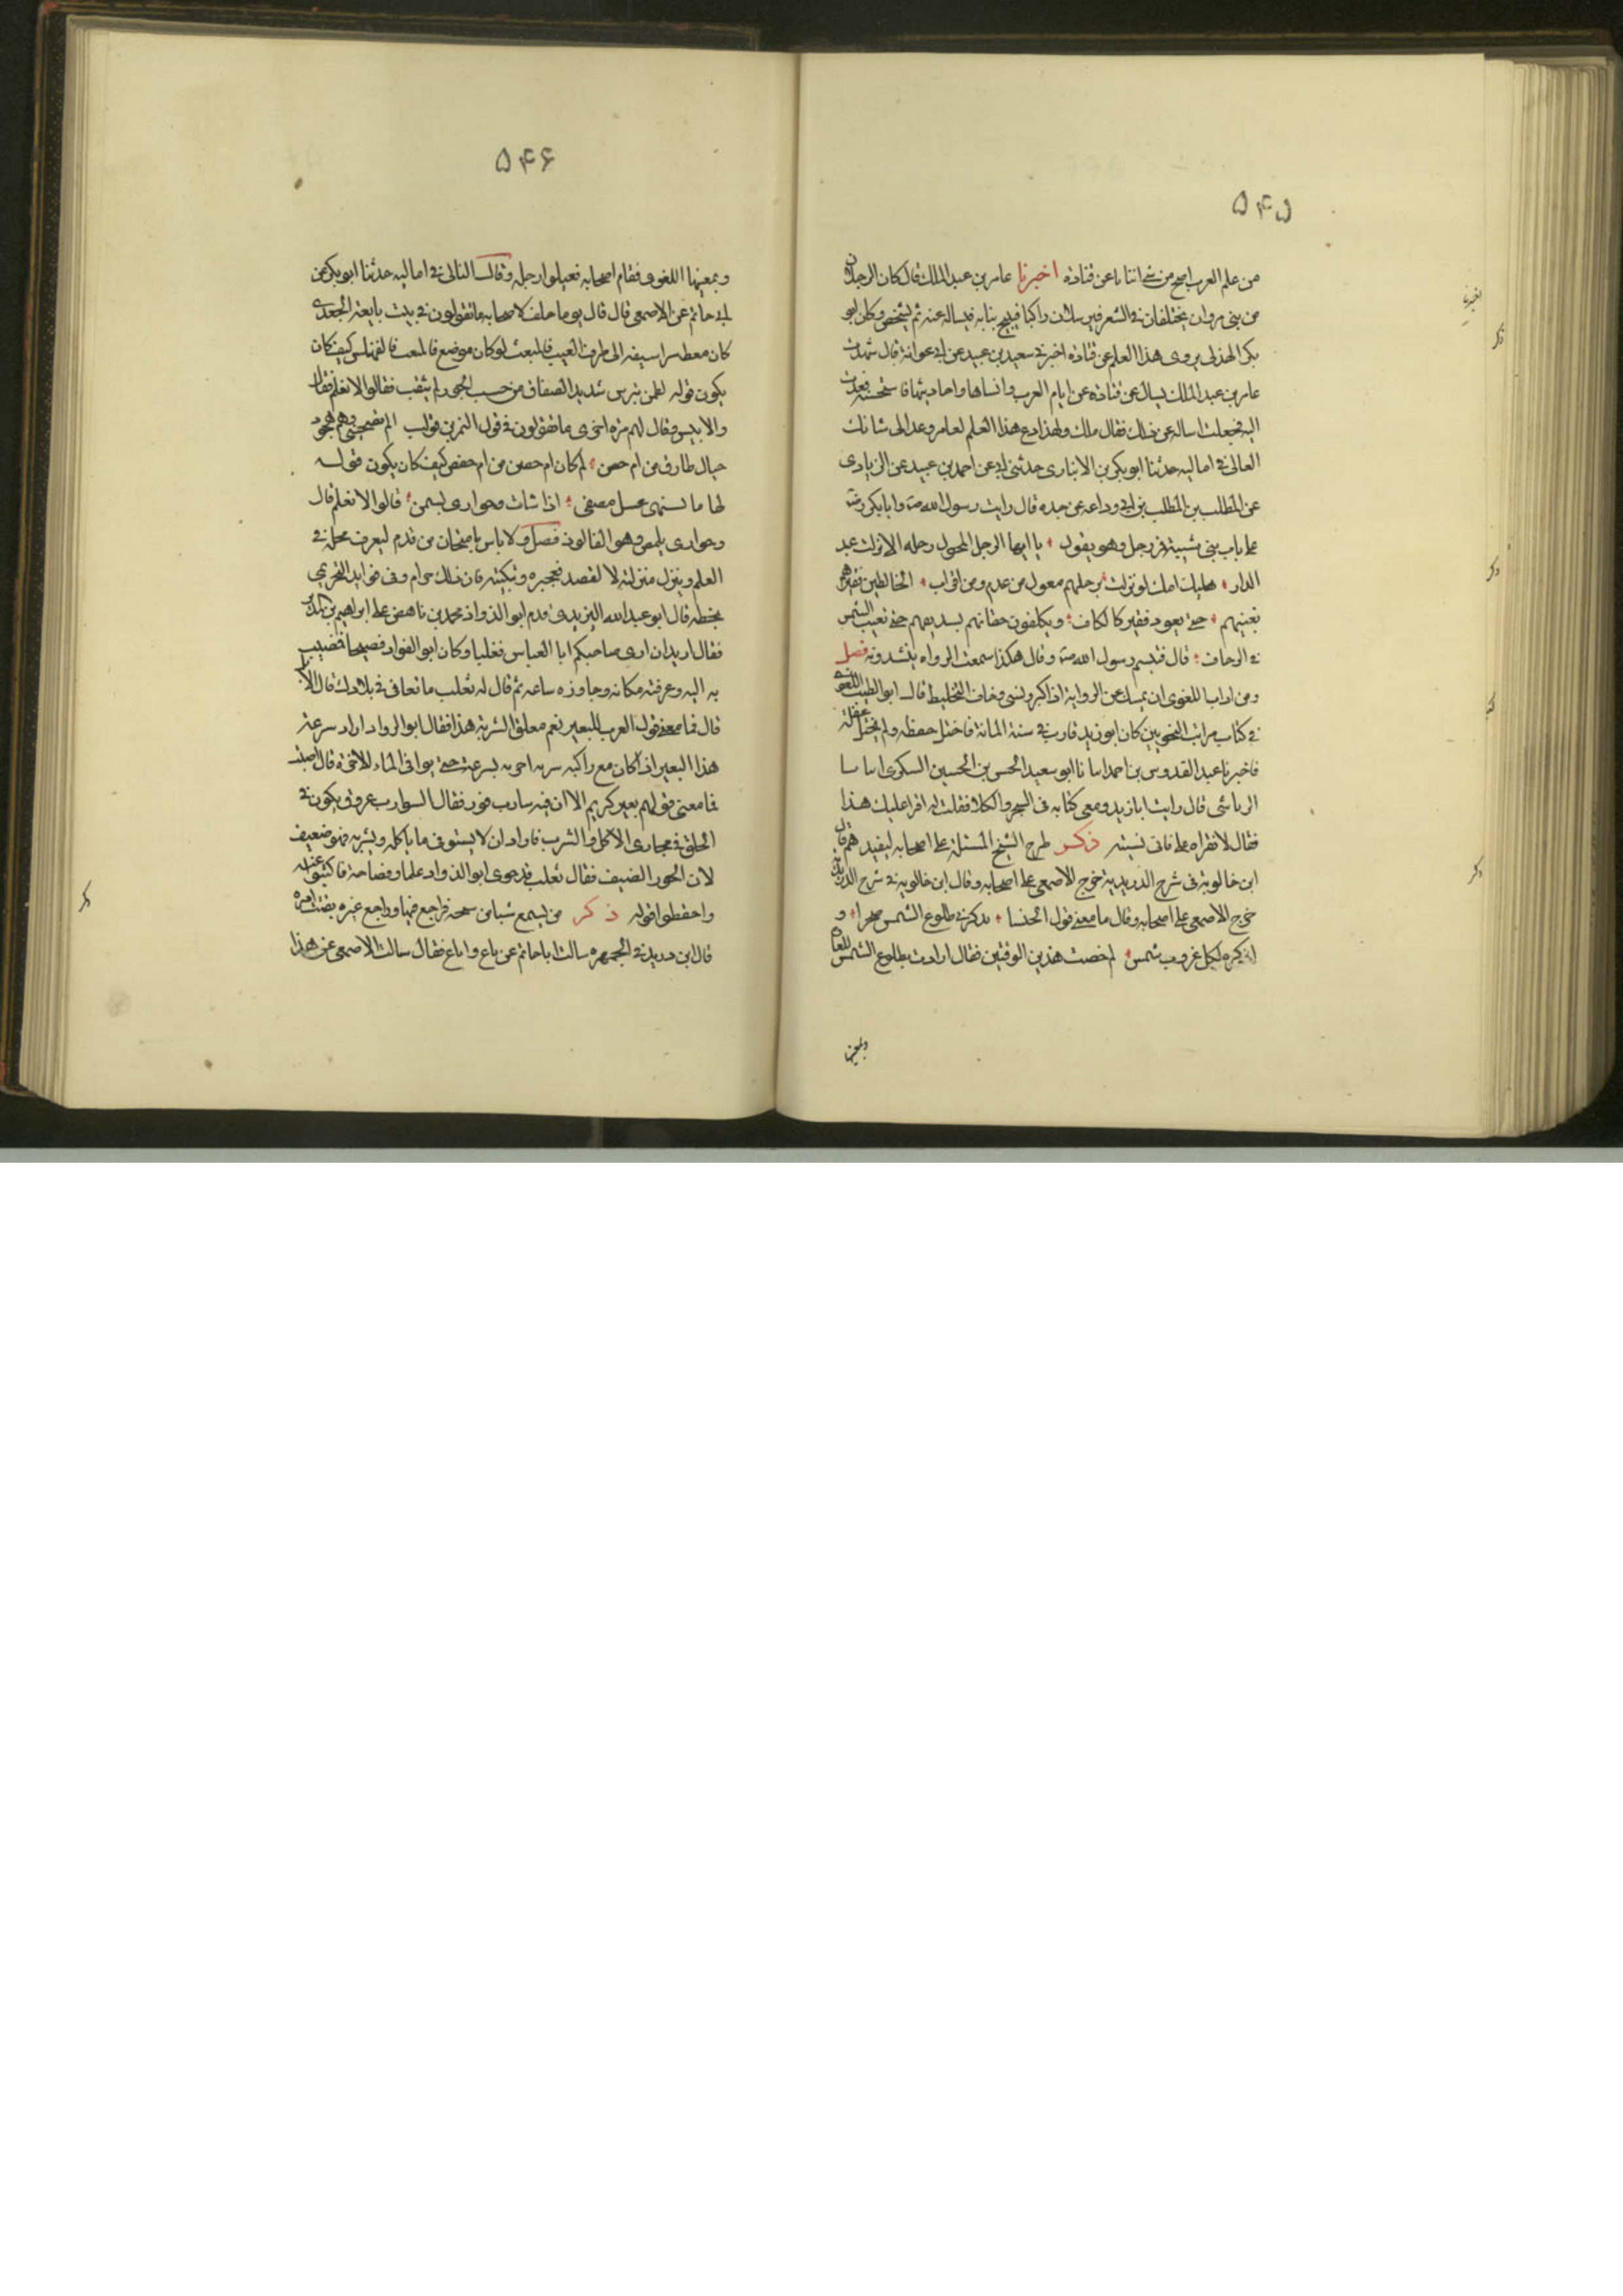 ۵۴۵
من علم العرب اصح من شئ اتانا عن قتادة اخبرنا عامر بن عبد الملك قال كان الرجلان
من بنى مروان يختلفان فى الشعر فيرسلان راكبا فينيخ ببابه فيساله عنه ثم يشخص وكان ابو
بكر الهذلى يروى هذا العلم عن قتادة اخبرنى سعيد بن عبيد عن ابى عوانة قال شهدت
عامر بن عبد الملك يسال عن قتادة عن ايام العرب وانسابها واحاديثها فاستحسنته فعدت
اليه فجعلت اساله عن ذلك فقال مالك ولهذا دع هذا العلم لعامر وعد الى شانك
القالى فى اماليه حدثنا ابو بكر بن الانبارى حدثنى ابى عن احمد بن عبيد عن الزيادى
عن المطلب بن المطلب بن ابى وداعه عن جده قال رايت رسول الله ص وابا بكر رض
على باب بنى شيبة فمر رجل وهو يقول يا ايها الرجل المحول رحله الا نزلت بعبد
الدار هبلتك امك لو نزلت برحلهم من عدم ومن اقراب الخالطين فقيرهم
بغنيهم حتى يعود فقيرهم كالكاف ويكلفون جفانهم بسديفهم حتى تغيب الشمس
فى الرجاف قال فتبسم رسول الله ص وقال هكذا سمعت الرواه ينشدونه فصل
ومن اداب اللغوى ان يمسك عن الرواية اذا كبر ونسى وخاف التخليط قال ابو الطيب اللغوى
فى كتاب مراتب النحويين كان ابو زيد قارب فى سنه المائة فاختل حفظه ولم يختل عقله
فاخبرنا عبد القدوس بن احمد انبانا ابو سعيد الحسن بن الحسين السكرى انبانا
الرياشى قال رايت ابا زيد ومعى كتابه فى الشجر والكلا فقلت له اقرا عليك هذا
فقال لا تقراه على فانى نسيته ذكر طرح الشيخ المسئلة على اصحابه ليفيدهم قال
ابن خالويه فى شرح الدريدية خرج الاصمعى على اصحابه وقال ابن خالويه فى شرح الدريديه
خرج الاصمعى على اصحابه وقال ما معنى قول الخنسا يذكرنى طلوع الشمس صخرا و
اذكره لكل غروب شمس لم خصت هذين الوقتين فقال ارادت بطلوع الشمس للغارة
وبمغيبها
اخبرنا
ذكر
ذكر
ذكر
۵۴۶
وبمغيبها اللقرى فقام اصحابه فقبلوا رجله وقال القالى فى اماليه حدثنا ابو بكر عن
ابى حاتم عن الاصمعى قال قال يوما خلف لاصحابه ما تقولون فى بيت نابغة الجعدى
كان مقط شراسيفه الى طرف القنب فالمنقب لو كان موضع فالمنقب فالقهبلس كيف كان
يكون قوله لطمن بترس شديد الصفاق من خشب الجوز لم يثقب فقالوا لا نعلم فقال
والابنس وقال لهم مرة اخرى ما تقولون فى قول النمر بن تولب الم بصحبتى وهم هجود
خيال طارق من ام حصن لو كان ام حصن من ام حفص كيف كان يكون قوله
لها ما تشتهى عسل مصفى اذا شات وحوارى بسمن قالوا لا نعلم قال
وحوارى بلمص وهو الفالوذ فصل ولا باس بامتحان من قدم ليعرف محله فى
العلم وينزل منزلته لا لقصد تعجيزه وتبكيته فان ذلك حرام وفى فوايد النجيرمى
بخطه قال ابو عبد الله اليزيدى قدم ابو الذواد محمد بن ناهض على ابراهيم بن المدبر
فقال اريد ان ارى صاحبكم ابا العباس ثعلبا وكان ابو الذواد فصيحا فمضيت
به اليه وعرفته مكانه وجاوزه ساعه ثم قال له ثعلب ما تعانى فى بلادك قال الابل
قال فما معنى قول العرب للبعير نعم معلق الشربة هذا فقال ابو الذواد اراد سرعة
هذا البعير اذا كان مع راكبه شربة اجزته لسرعته حتى يوافى الماء الاخر قال اصبت
فما معنى قولهم بعير كريم الا ان فيه شارب خور فقال الشوارب عروق يكون فى
الحلق فى مجارى الاكل والشرب فاراد ان لا يستوفى ما ياكله ويشربه فهو ضعيف
لان الخور الضعف فقال ثعلب قد حوى ابو الذواد علما وفصاحة فاكتبوا عنه
واحفظوا قوله ذكر من يسمع شيا من شيخه فراجع فيها وراجع غيره يتثبت امره
قال ابن دريد فى الجمهره سالت ابا حاتم عن باع واباع فقال سالت الاصمعى عن هذا
ذكر